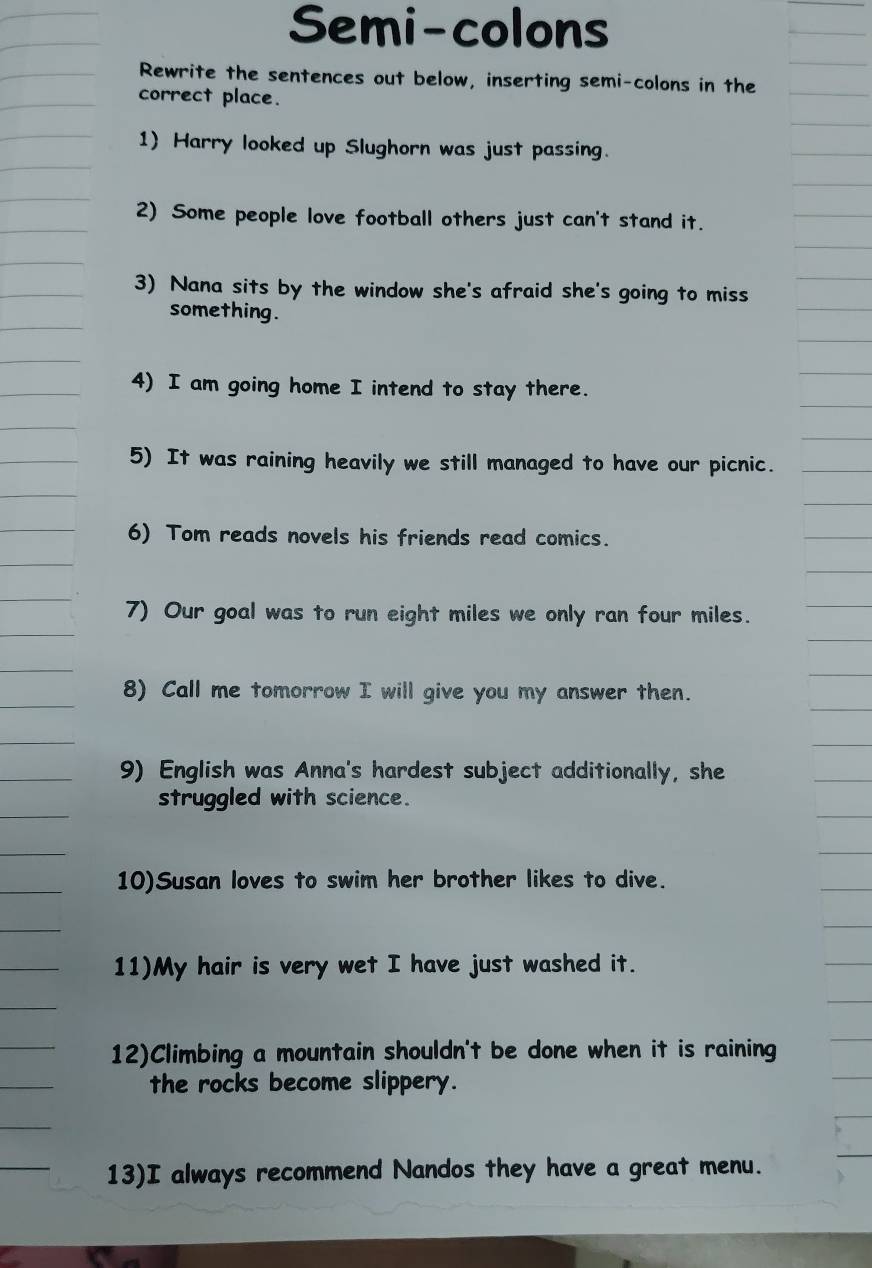 Semi-colons
Rewrite the sentences out below, inserting semi-colons in the
correct place.
1) Harry looked up Slughorn was just passing.
2) Some people love football others just can't stand it.
3) Nana sits by the window she's afraid she's going to miss
something.
4) I am going home I intend to stay there.
5) It was raining heavily we still managed to have our picnic.
6) Tom reads novels his friends read comics.
7) Our goal was to run eight miles we only ran four miles.
8) Call me tomorrow I will give you my answer then.
9) English was Anna's hardest subject additionally, she
struggled with science.
10)Susan loves to swim her brother likes to dive.
11)My hair is very wet I have just washed it.
12)Climbing a mountain shouldn't be done when it is raining
the rocks become slippery.
13)I always recommend Nandos they have a great menu.